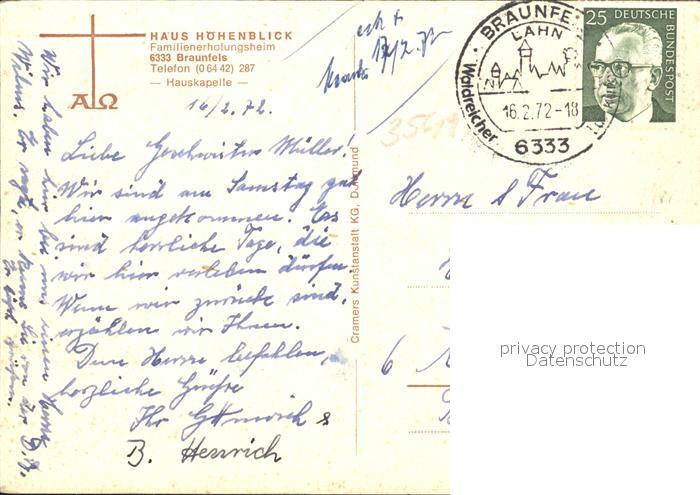 HAUS HÖHENBLICK
Familienerholungsheim
6333 Braunfels
Telefon (0 64 42) 287
— Hauskapelle —
Α Ω
16/2. 72.
Liebe Geschwister Müller!
Wir sind am Samstag gut
hier angekommen. Es
sind herrliche Tage, die
wir hier verleben dürfen.
Wenn wir zurück sind,
erzählen wir Ihnen.
Dem Herrn befohlen,
herzliche Grüße
Ihr
B. Henrich
Wir haben hier bei uns einen Herrn
Er sagt, er kenne Sie von der
Cramers Kunstanstalt KG, Dortmund
17/2. 72
BRAUNFELS
LAHN
16.2.72-18
Waldreicher
6333
25 DEUTSCHE
BUNDESPOST
Herrn & Frau
6
privacy protection
Datenschutz